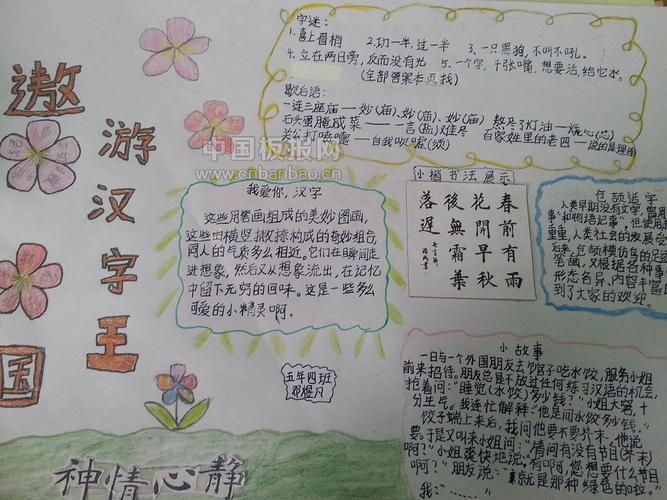 遨
游
汉
字
王
国
字迷:
1.喜上眉梢 2.功一半,过一半 3.一只黑狗,不叫不吼。
4.立在两日旁,反而没有光 5.一个字,千张嘴,想要活,给它水。
(全部答案本页找)
歇后语:
一连三座庙——妙(庙)、妙(庙)、妙(庙) 熬尽了灯油——烧心(芯)
石头蛋腌咸菜——一言(盐)难尽 百家姓里的老四——说的是理
关公打喷嚏——自我吹嘘(须)
中国板报网
www.cnbanbao.cn
我爱你,汉字
这些用笔画组成的美妙图画,
这些由横竖撇捺构成的奇妙组合,
同人的气质多么相近。它们在瞬间走
进想象,然后又从想象流出,在记忆
中留下无穷的回味。这是一些多么
可爱的小精灵啊。
小楷书法展示
春前有雨
花開早秋
後無霜葉
落遲
仓颉造字
人类早期没有文字,
事"和物语记事",但使用
重重,人类社会的发展
后来,仓颉模仿鸟的足迹
笔画,又根据各种事
形态各异,内容丰富的
到了大家的欢迎
五年四班
小故事
一日与一个外国朋友去饺子馆吃水饺,服务小姐
前来招待。朋友总是不放过任何练习汉语的机会,
抢着问:"睡觉(水饺)多少钱?"小姐大窘,十
分生气。我连忙解释"他是问水饺多少钱。"
饺子端上来后,我问他要不要芥末,他说
要。于是又叫来小姐问:"请问有没有节目(芥末)
啊?"小姐爽快地说:"有啊,您想要什么节目
啊?"朋友说:"就是那种绿色的啦。"
我:……
神情心静